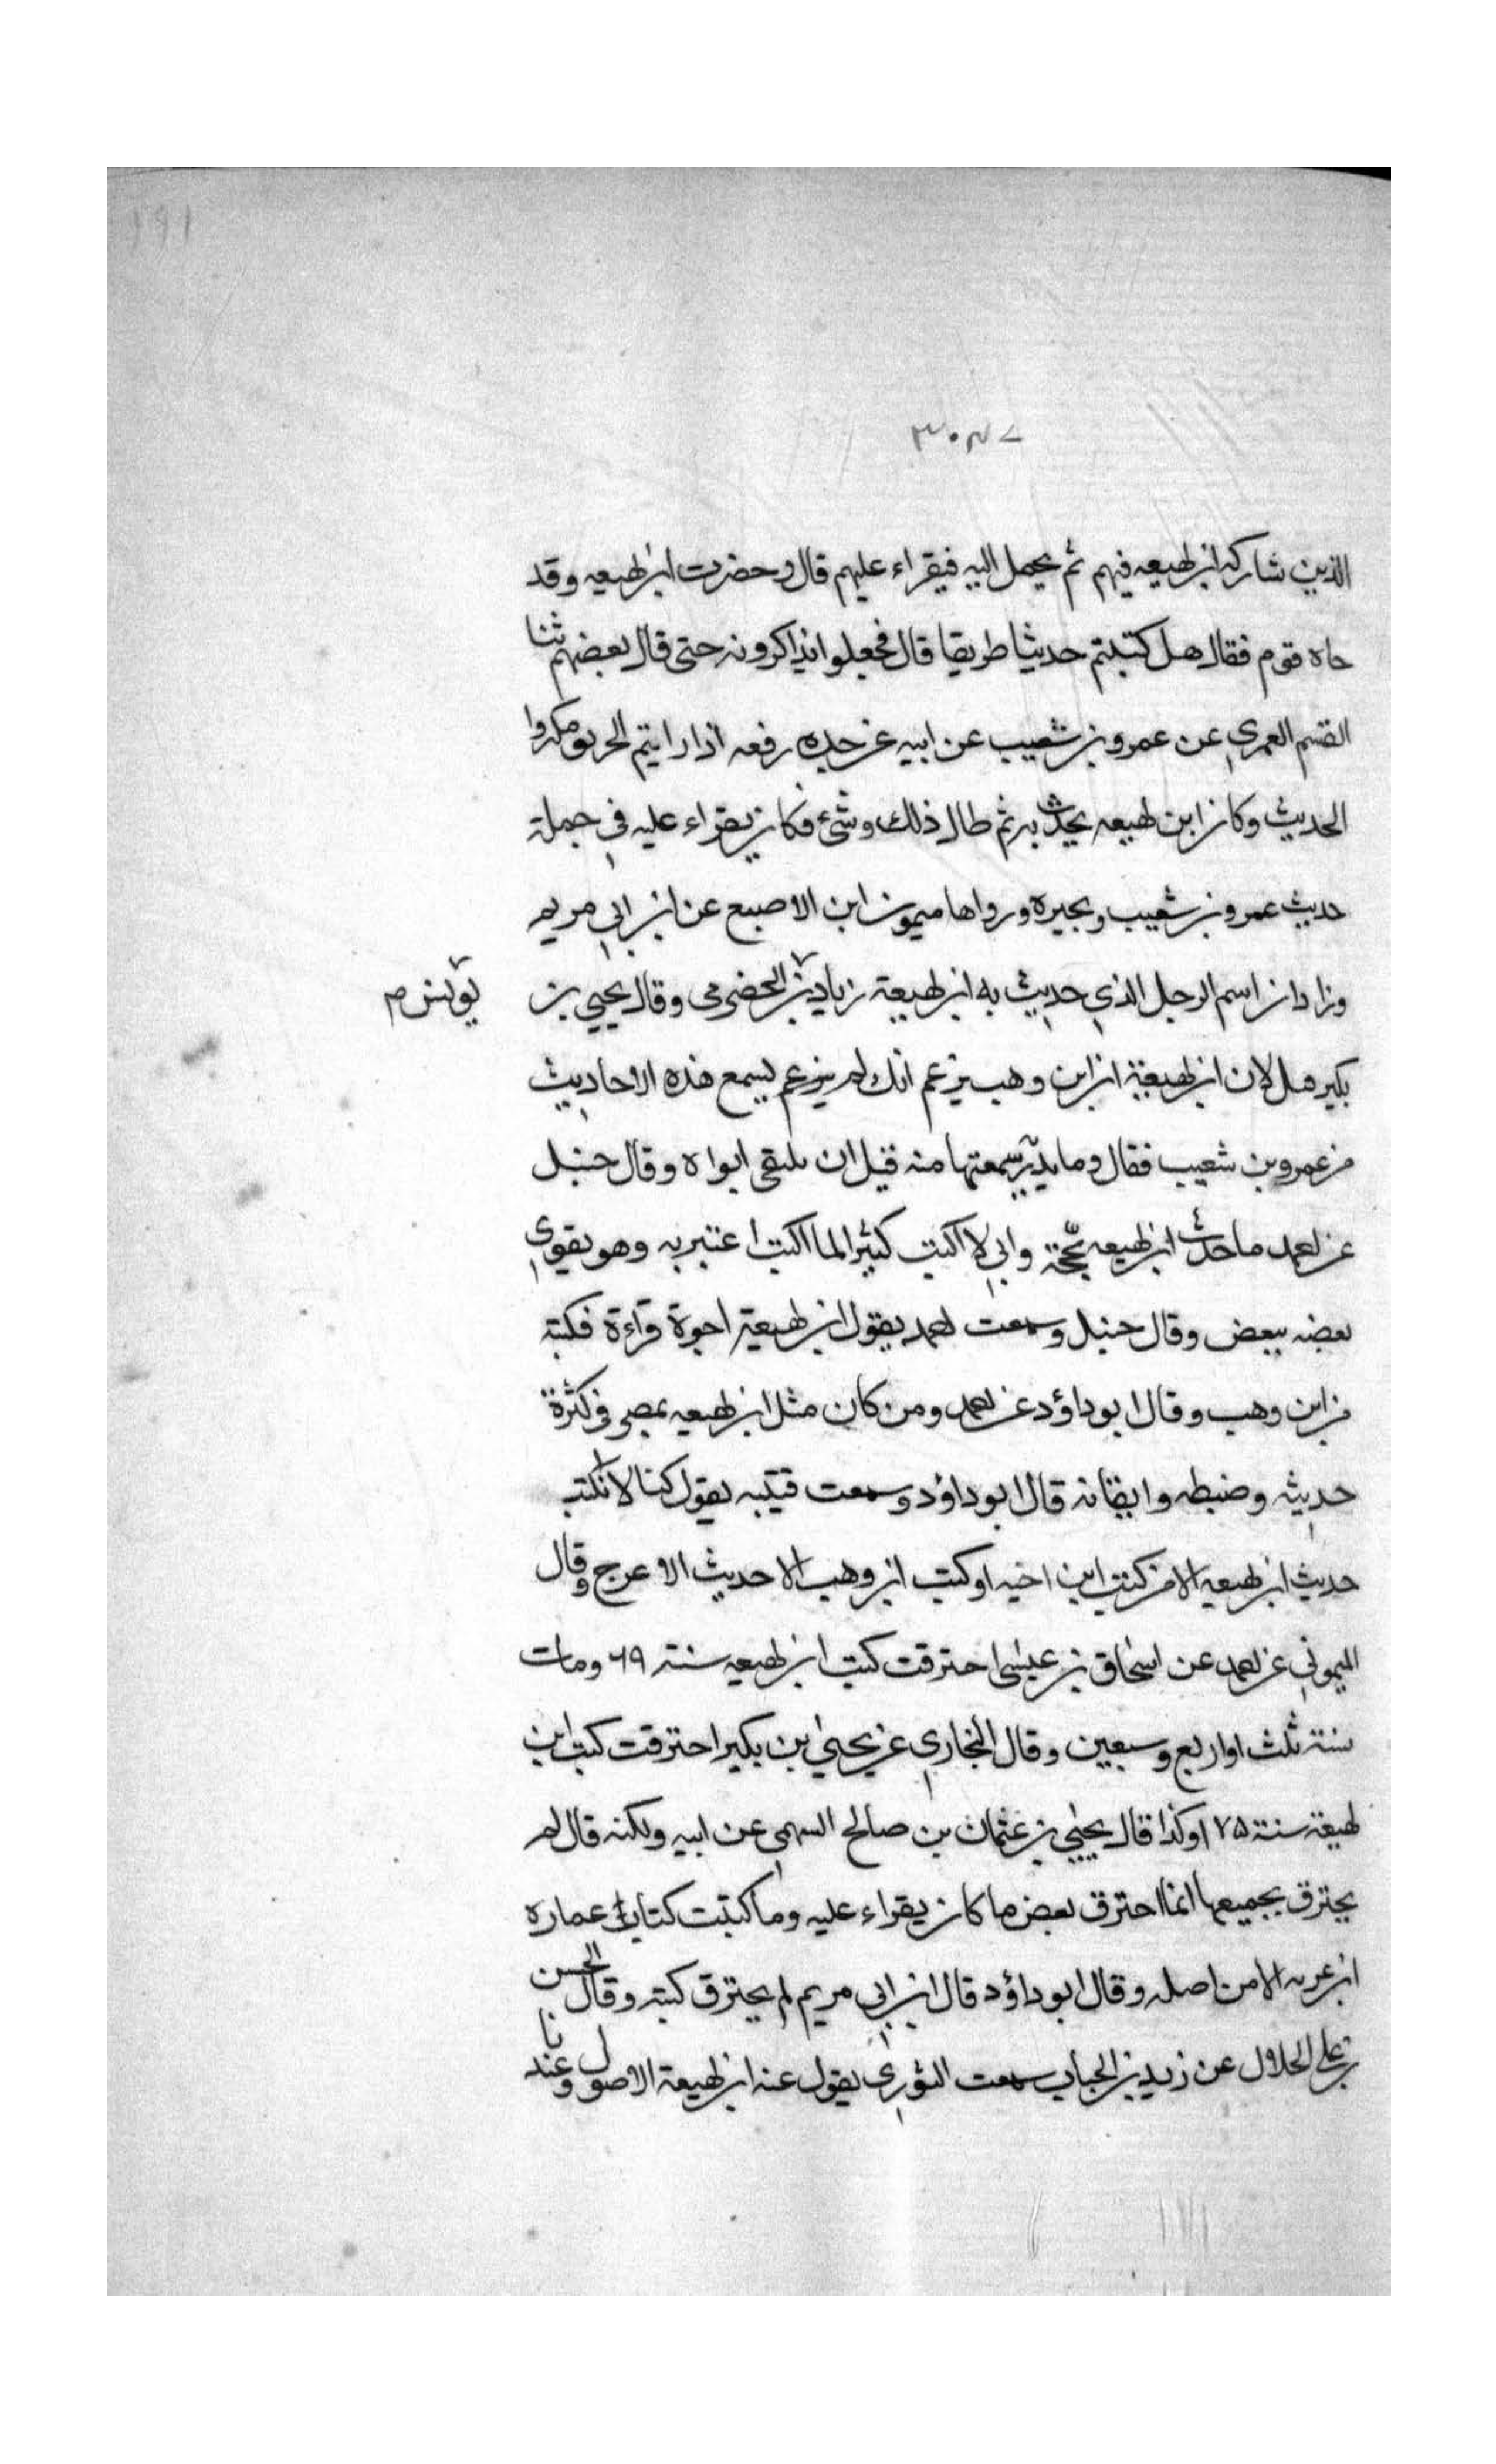 ١٩١
٣٠٤٧
الذين شاركه ابن لهيعه فيهم ثم يحمل اليه فيقراء عليهم قال وحضرت ابن لهيعه وقد
جاه قوم فقال هل كتبتم حديثا طريقا قال فجعلوا يذاكرونه حتى قال بعضهم ثنا
القسم العمري عن عمرو بن شعيب عن ابيه عن جده رفعه اذا رايتم الحريق فكبروا
الحديث وكان ابن لهيعه يحدث به ثم طال ذلك ونسي فكان يقراء عليه في جملة
حديث عمرو بن شعيب ويجيزه ورواها ميمون ابن الاصبع عن ابن ابي مريم
وزاد ان اسم الرجل الذي حديث به ابن لهيعة زياد بن الحضرمي وقال يحيي بن
يونس م
بكير قيل لابن لهيعة ان ابن وهب يزعم انك لم يزعم يسمع هذه الاحاديث
من عمرو بن شعيب فقال وما يدريه سمعتها منه قبل ان يلتقي ابواه وقال حنبل
عن احمد ما حدث ابن لهيعه بحجة واني لا اكتب كثيرا مما اكتب اعتبر به وهو يقوي
بعضه ببعض وقال حنبل وسمعت احمد يقول ابن لهيعة اجوة قراءة فكتبه
من ابن وهب وقال ابو داؤد عن احمد ومن كان مثل ابن لهيعه بمصر في كثرة
حديثه وضبطه وايقانه قال ابو داؤد وسمعت قتيبه يقول كنا لا نكتب
حديث ابن لهيعه الا من كتب ابن اخيه او كتب ابن وهب الا حديث الاعرج وقال
الميموني عن احمد عن اسحاق بن عيسى احترقت كتب ابن لهيعه سنة ٦٩ ومات
سنة ثلث او اربع وسبعين وقال البخاري عن يحيى ابن بكير احترقت كتب ابن
لهيعة سنة ٧٥ ا وكذا قال يحيي بن عثمان بن صالح السهمي عن ابيه ولكنه قال لم
يحترق بجميعها انما احترق بعض ما كان يقراء عليه وما كتبت كتاب عماره
ابن غزيه الا من اصله وقال ابو داؤد قال ابن ابي مريم لم يحترق كتبه وقال الحسن
بن علي الحلال عن زيد بن الحباب سمعت الثوري يقول عند ابن لهيعة الاصول وعندنا